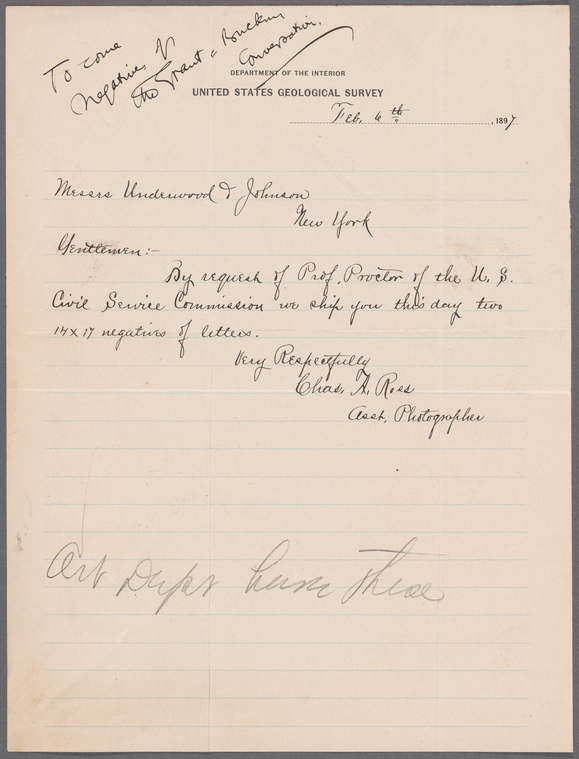 To come
Negatives of
the Grant & Buckner
Conversation.
DEPARTMENT OF THE INTERIOR
UNITED STATES GEOLOGICAL SURVEY
Feb. 6th, 1897
Messrs Underwood & Johnson
New York
Gentlemen:-
By request of Prof. Proctor of the U. S.
Civil Service Commission we ship you this day two
14x17 negatives of letters.
Very Respectfully
Chas. A. Ross
Asst. Photographer
Art Dept have these